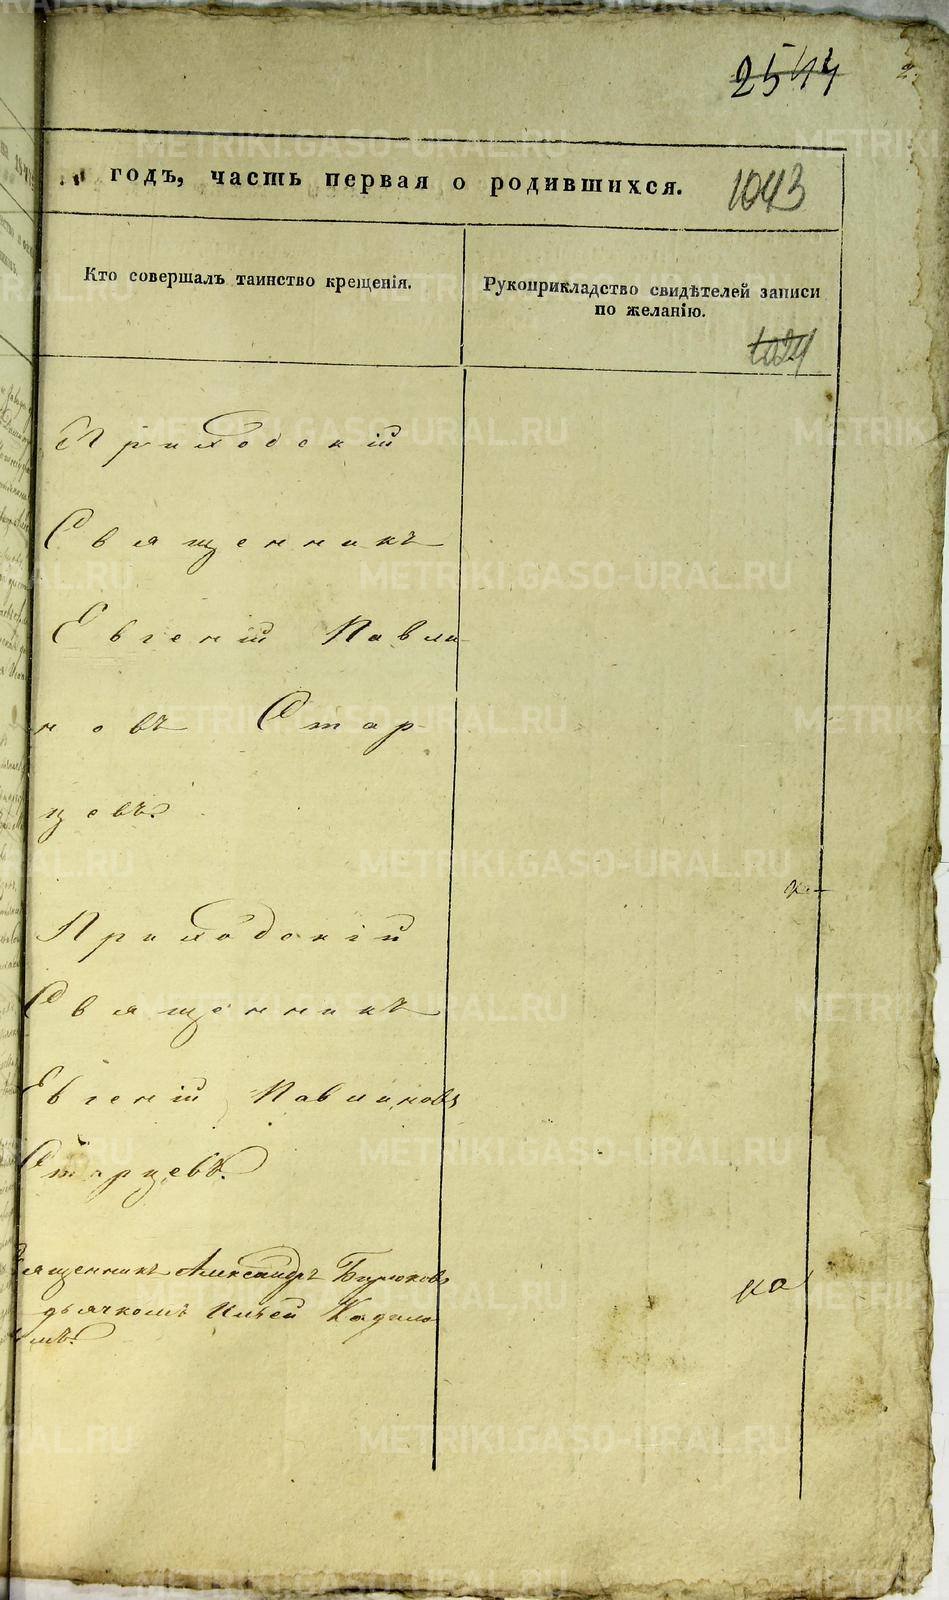 2544
годъ, часть первая о родившихся.
1043
Кто совершалъ таинство крещенія.
Рукоприкладство свидѣтелей записи
по желанію.
1024
Приходскій
Священникъ
Евгеній Павли-
новъ Стар-
цевъ.
Приходскій
Священникъ
Евгеній Павлиновъ
Старцевъ.
Священникъ Александръ Бирюковъ
дьячкомъ Ильей
ка
METRIKI.GASO-URAL.RU